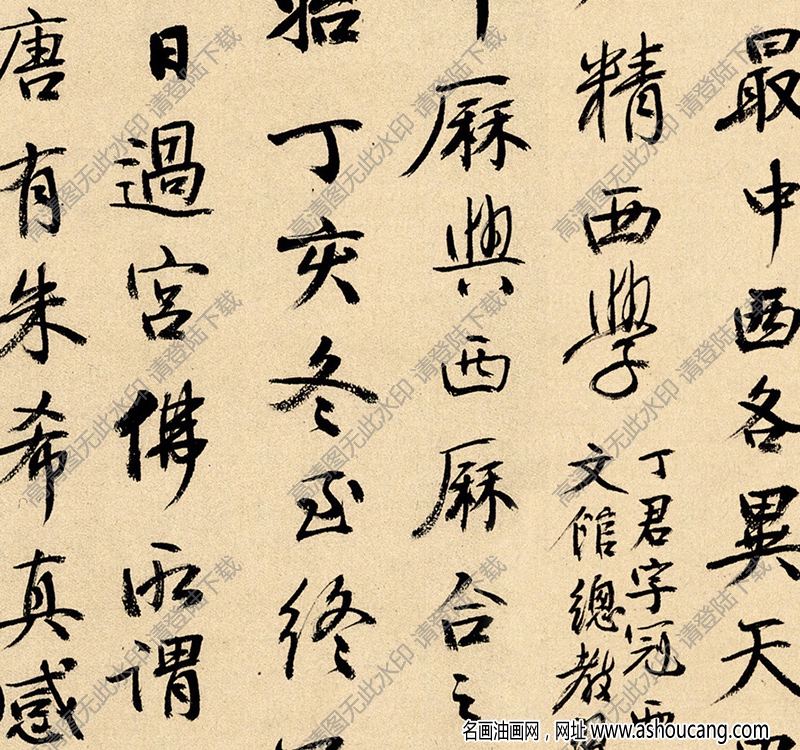 最中西各異天
精西學
丁君字冠西
文館總教
厤與西厤合之
丁亥冬至終
日過宮佛所謂
唐有朱希真感
高清图无此水印 请登陆下载
名画油画网，网址 www.ashoucang.com